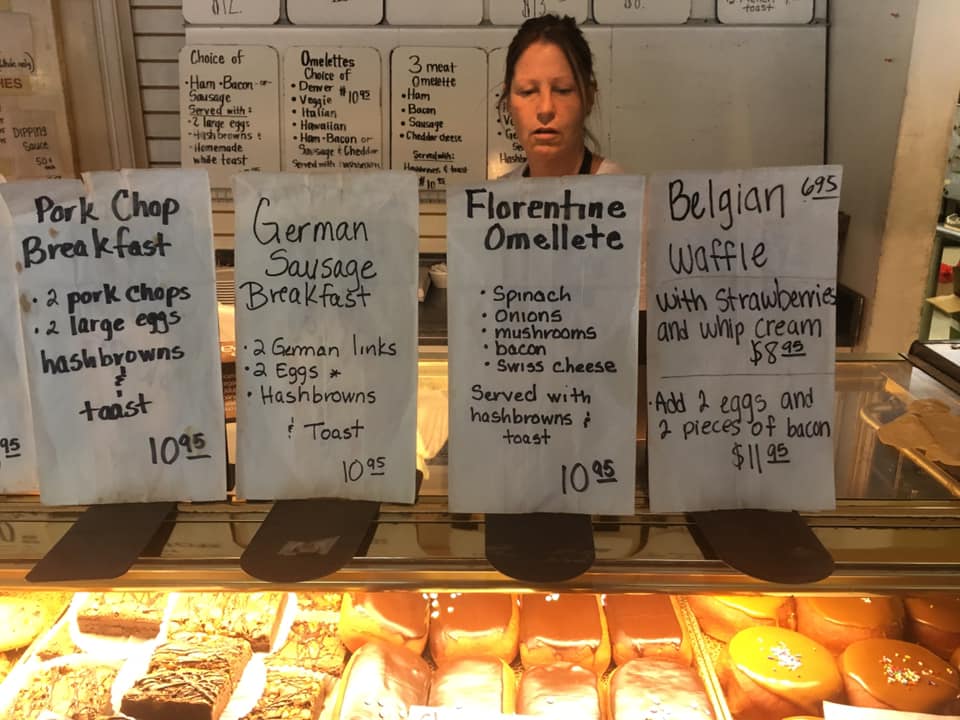 $12.
$13.
toast
HES
DIPPING
Sauce
50¢
Choice of
• Ham • Bacon - or -
Sausage
Served with:
• 2 large eggs
• Hashbrowns &
• Homemade
white toast
Omelettes
Choice of
• Denver $10 95
• Veggie
• Italian
• Hawaiian
• Ham - Bacon or
Sausage & Cheddar
Served with Hashbrowns
3 meat
Omelette
• Ham
• Bacon
• Sausage
• Cheddar cheese
Served with:
Hashbrowns & toast
$10 95
Pork Chop
Breakfast
• 2 pork chops
• 2 large eggs
hashbrowns
&
toast
10 95
95
German
Sausage
Breakfast
• 2 German links
• 2 Eggs *
• Hashbrowns
& Toast
10 95
Florentine
Omellete
• Spinach
• Onions
• mushrooms
• bacon
• Swiss cheese
Served with
hashbrowns &
toast
10 95
Belgian 6 95
Waffle
with Strawberries
and whip cream
$8 95
• Add 2 eggs and
2 pieces of bacon
$11 95